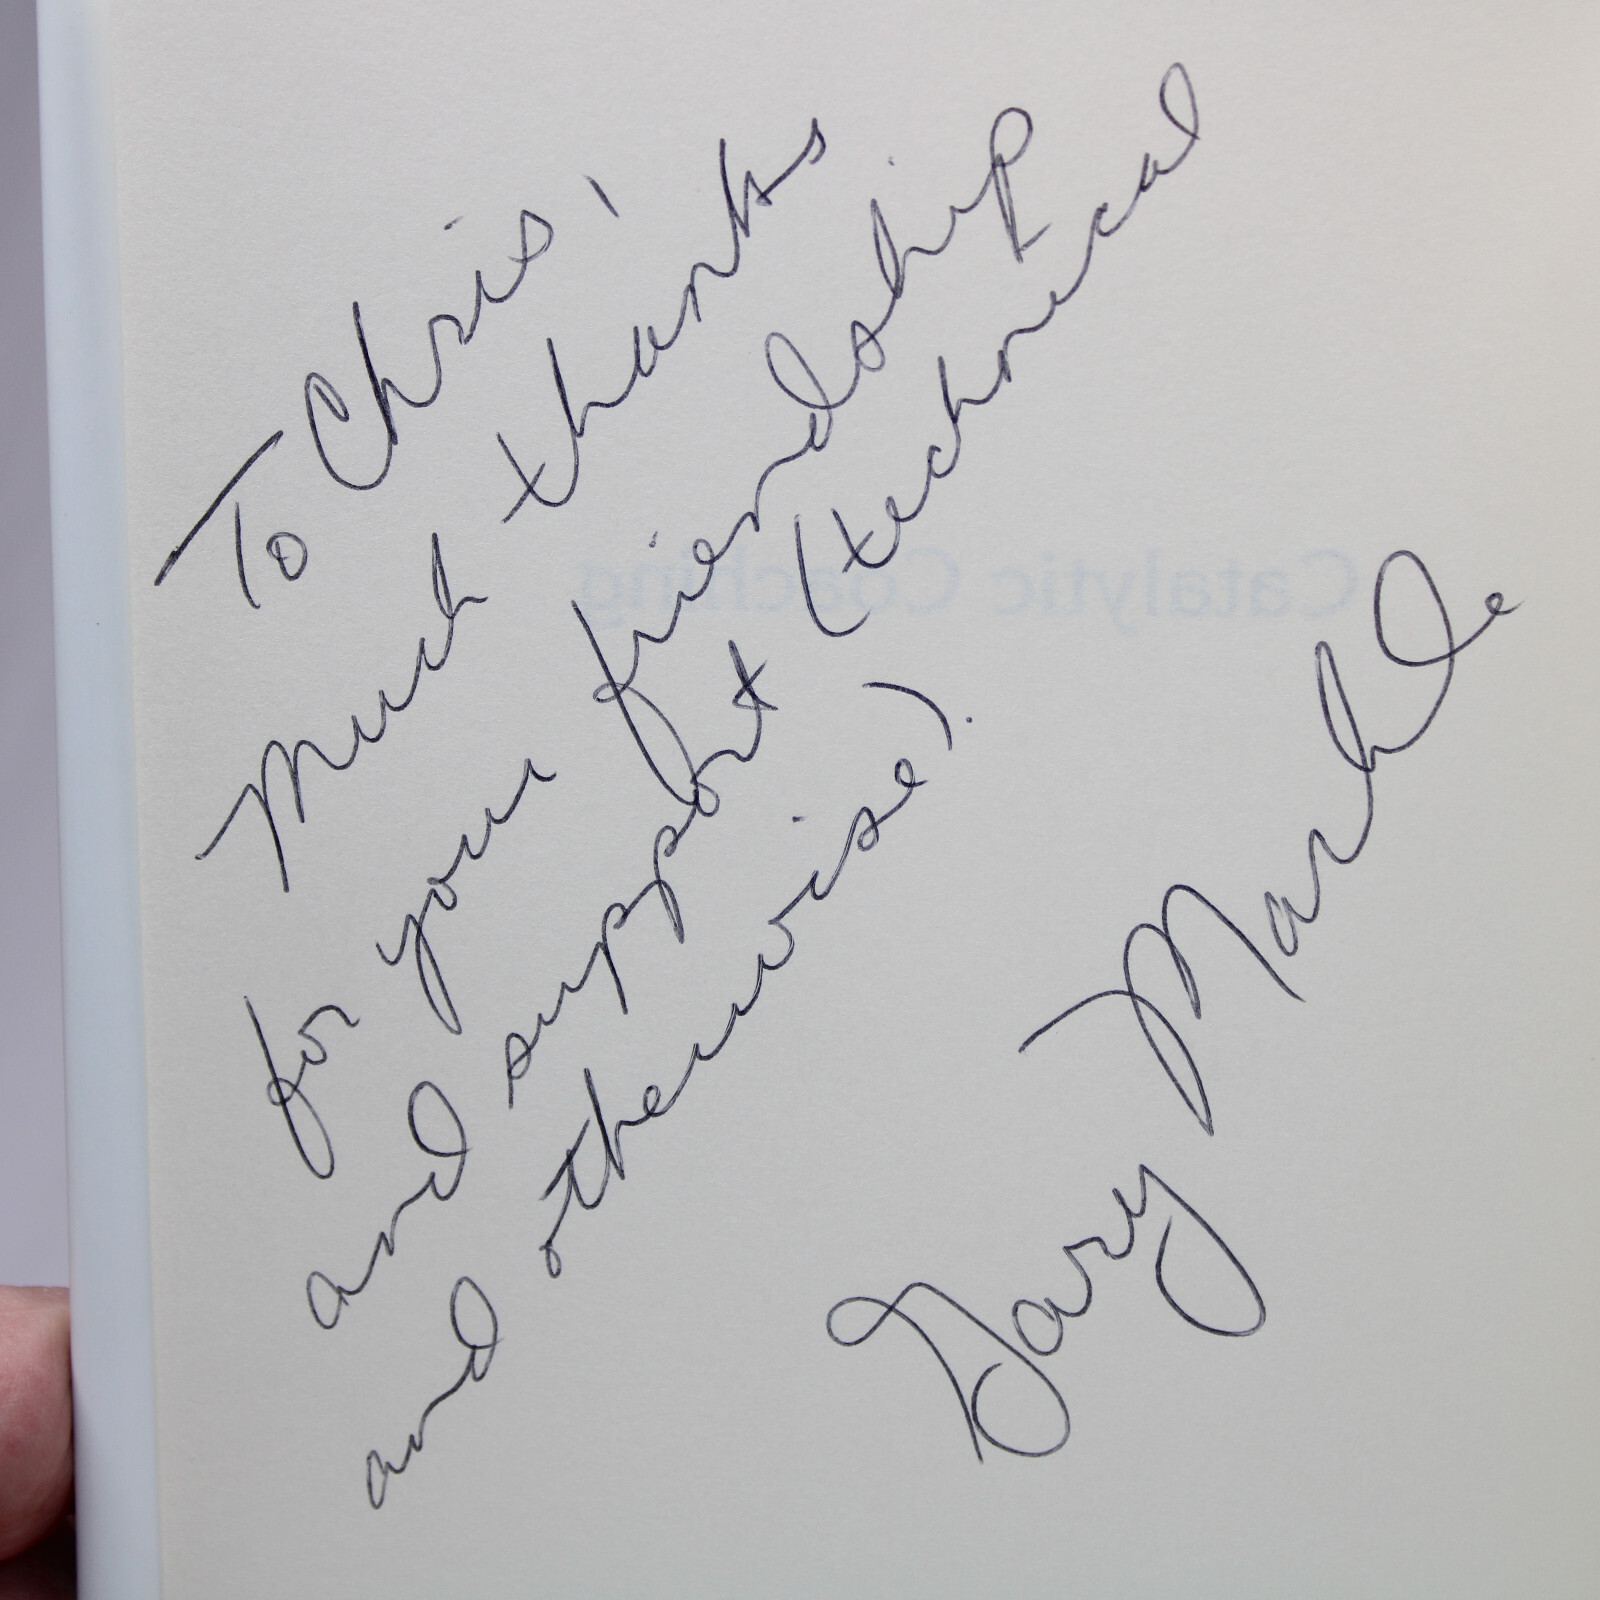 To Chris,
Much thanks
for your friendship
and support (technical
and otherwise).
Gary Markle
Catalytic Coaching